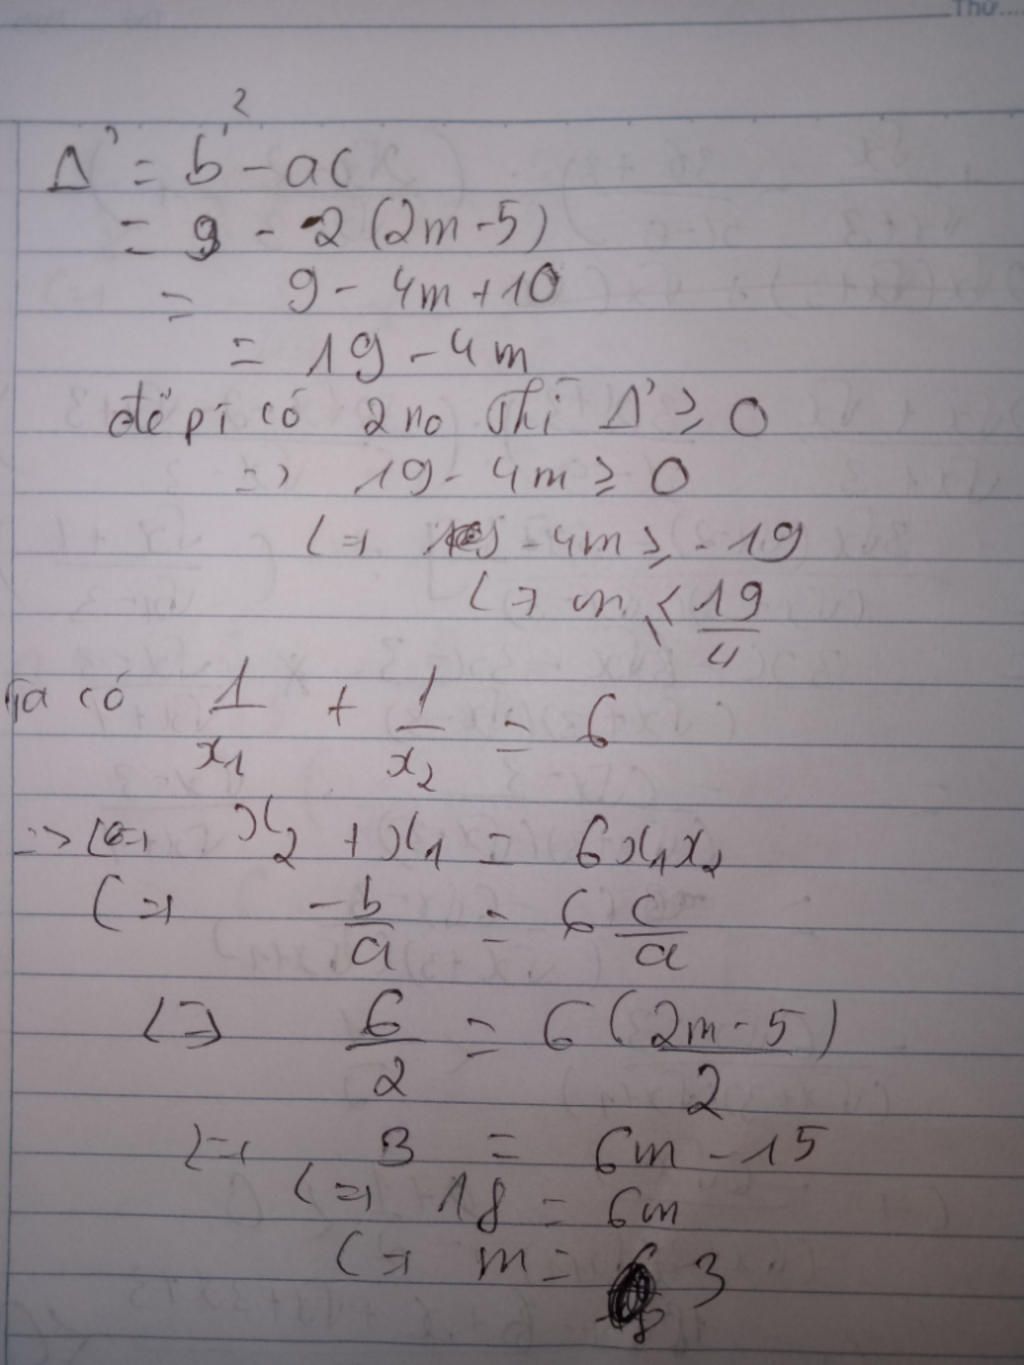 Thứ....
Δ' = b'² - ac
= 9 - 2 (2m-5)
= 9 - 4m + 10
= 19 - 4m
để pt có 2 no thì Δ' ≥ 0
=> 19 - 4m ≥ 0
<=> - 4m ≥ - 19
<=> m ≤ 19/4
Ta có 1/x₁ + 1/x₂ = 6
=> x₂ + x₁ = 6x₁x₂
<=> -b/a = 6 c/a
<=> 6/2 = 6 (2m - 5)/2
<=> 3 = 6m - 15
<=> 18 = 6m
<=> m = 3